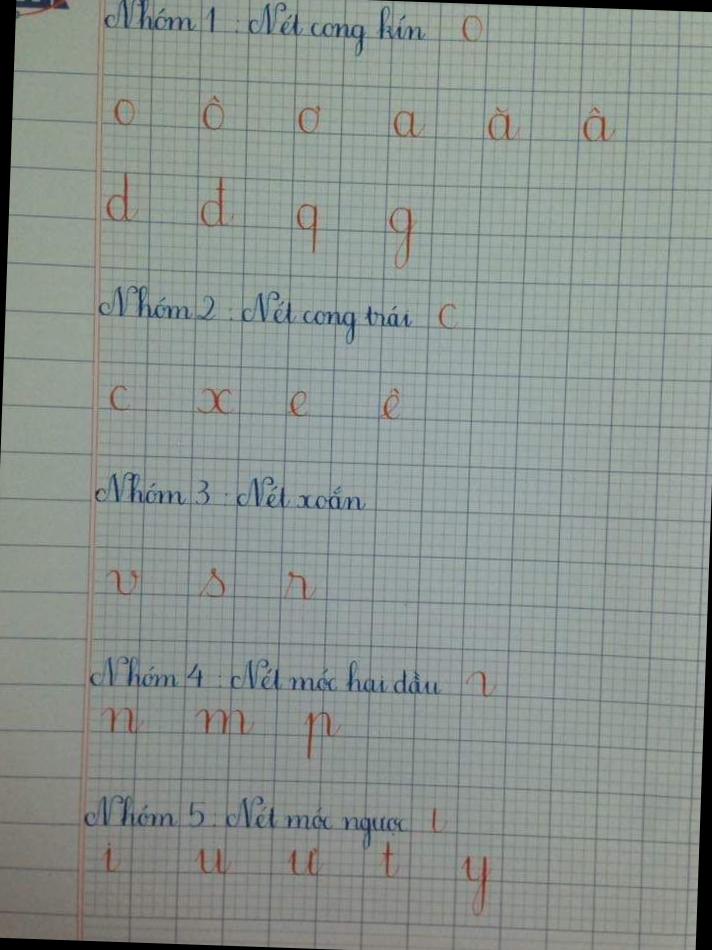 Nhóm 1 : Nét cong kín O
o ô ơ a ă â
d đ q g
Nhóm 2 : Nét cong trái C
c x e ê
Nhóm 3 : Nét xoắn
v s r
Nhóm 4 : Nét móc hai đầu
n m p
Nhóm 5 : Nét móc ngược
i u ư t y